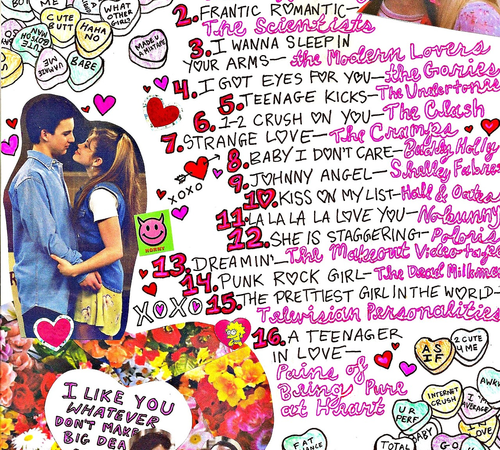 ME
CUTE BUTT
WHAT OTHER GIRLS?
HAHA NO
MADE U A MIXTAPE
BABE
2. FRANTIC ROMANTIC—
The Scientists
3. I WANNA SLEEP IN
YOUR ARMS— the Modern Lovers
4. I GOT EYES FOR YOU— the Gories
5. TEENAGE KICKS— The Undertones
6. 1-2 CRUSH ON YOU— The Clash
7. STRANGE LOVE— The Cramps
8. BABY I DON'T CARE— Buddy Holly
XOXO
9. JOHNNY ANGEL— Shelley Fabres
10. KISS ON MY LIST— Hall & Oates
11. LA LA LA LA LOVE YOU— Nobunny
HORNY
12. SHE IS STAGGERING— Polaris
13. DREAMIN'— The Makeout Videotape
14. PUNK ROCK GIRL— The Dead Milkmen
XOXO
15. THE PRETTIEST GIRL IN THE WORLD—
Television Personalities
16. A TEENAGER
IN LOVE—
Pains of
Being Pure
at Heart
I LIKE YOU
WHATEVER
DON'T MAKE
BIG DEA
AS IF
2 CUTE 4 ME
INTERNET CRUSH
U R PERF
I ♥ AVERAGE
AWK
BABY
TOTAL
GO
I'M LOVE
FAT